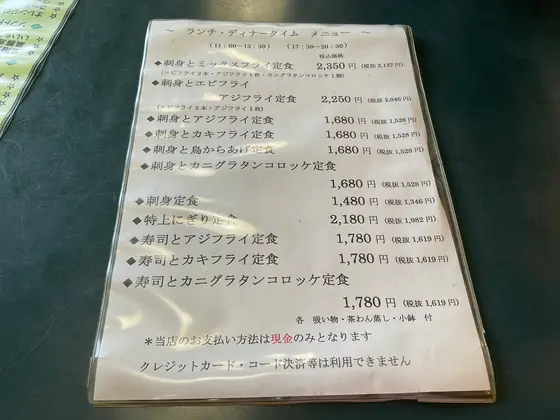 ～ ランチ・ディナータイム メニュー ～
（11：00～13：30） （17：30～20：30）
税込価格
◆刺身とミックスフライ定食 2,350 円（税抜 2,137 円）
（エビフライ2本・アジフライ1枚・カニグラタンコロッケ1個）
◆刺身とエビフライ
アジフライ定食 2,250 円（税抜 2,046 円）
（エビフライ2本・アジフライ1枚）
◆刺身とアジフライ定食 1,680 円（税抜 1,528 円）
◆刺身とカキフライ定食 1,680 円（税抜 1,528 円）
◆刺身と鳥からあげ定食 1,680 円（税抜 1,528 円）
◆刺身とカニグラタンコロッケ定食
1,680 円（税抜 1,528 円）
◆刺身定食 1,480 円（税抜 1,346 円）
◆特上にぎり定食 2,180 円（税抜 1,982 円）
◆寿司とアジフライ定食 1,780 円（税抜 1,619 円）
◆寿司とカキフライ定食 1,780 円（税抜 1,619 円）
◆寿司とカニグラタンコロッケ定食
1,780 円（税抜 1,619 円）
各 吸い物・茶わん蒸し・小鉢 付
＊当店のお支払い方法は現金のみとなります
クレジットカード・コード決済等は利用できません